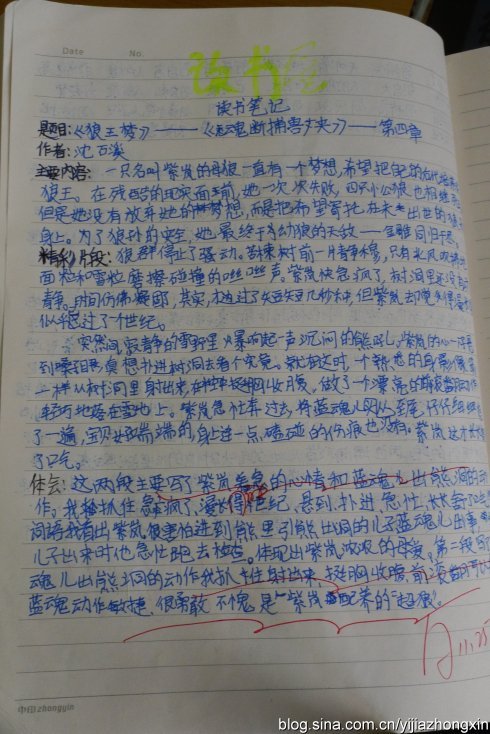 Date No.
读书
读书笔记
题目:《狼王梦》——《蓝魂断捕兽夹》——第四章
作者:沈石溪
主要内容: 一只名叫紫岚的母狼一直有一个梦想,希望把自己的后代培养
狼王。在残酷的现实面前,她一次次失败,四只小公狼也相继
但是她没有放弃她的梦想,而是把希望寄托在未出世的狼
身上。为了狼孙的安全,她最终与幼狼的天敌——金雕同归于
精彩片段:狼群停止了骚动。树前一片静,只有北风吹
面和雪粒磨擦碰撞的声。紫岚快急疯了,树洞里还没
静。时间仿佛凝固,其实,才过了短短几秒钟,但紫岚却觉得漫
似熬过了个世纪。
突然间寂静的雪野里爆响起一声沉闷的熊吼,紫岚的心一下悬
到嗓眼,真想扑进树洞去看个究竟。就在这时,一个熟悉的身影像
一样从树洞里射出来,在挺胸收腹,做了个漂亮的
轻巧地落在雪地上。紫岚急忙奔过去,将蓝魂儿从至尾仔仔细细
了一遍,宝贝好端端的,身上连一点碰的伤痕也没有。紫岚这才
了口气。
体会:这两段主要写了紫岚着急的心情和蓝魂儿出熊洞的动
作。我抓住急疯了、世纪、悬到、扑进、急忙、
词语我看出紫岚很害怕进到熊里引熊出洞的儿子蓝魂儿出事
儿子出来时也急忙跑去检查。体现出紫岚的母爱。第二段
魂儿出熊洞的动作我抓住射出来、挺胸收腹、
蓝魂动作敏捷,很勇敢,不愧是紫岚培养的“超狼”。
11.25
中印 zhongyin
blog.sina.com.cn/yijiazhongxin